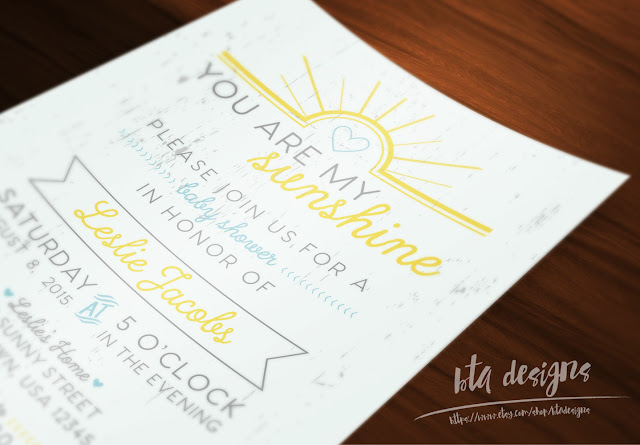 YOU ARE MY
sunshine
PLEASE JOIN US FOR A
baby shower
IN HONOR OF
Leslie Jacobs
SATURDAY
8, 2015
AT
5 O'CLOCK
IN THE EVENING
Leslie's Home
SUNNY STREET
USA 12345
bta designs
https://www.etsy.com/shop/btadesigns